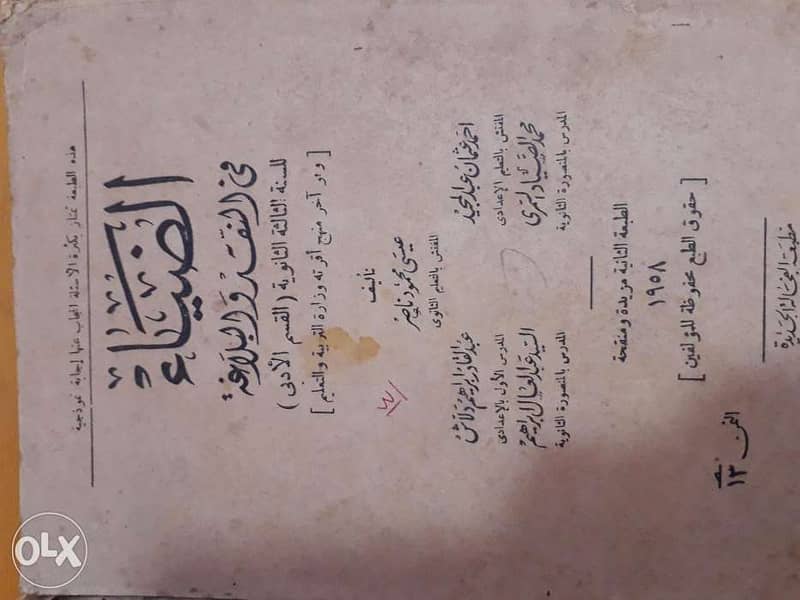 هذه الطبعة تمتاز بكثرة الأسئلة المجاب عنها إجابة نموذجية
الضياء
في النقد والبلاغة
للسنة الثالثة الثانوية ( القسم الأدبى )
[ وهو آخر منهج أقرته وزارة التربية والتعليم ]
تأليف
عيسى محمود ناصر
المفتش بالتعليم الثانوى
احمد عثمان عبد المجيد
المفتش بالتعليم الإعدادى
عبد القادر ابراهيم دلاش
المدرس الأول بالإعدادى
محمد الصياد المرى
المدرس بالمنصورة الثانوية
السيد عبد العال ابراهيم
المدرس بالمنصورة الثانوية
الطبعة الثانية مزيدة ومنقحة
١٩٥٨
[ حقوق الطبع محفوظة للمؤلفين ]
الثمن ١٣
OLX